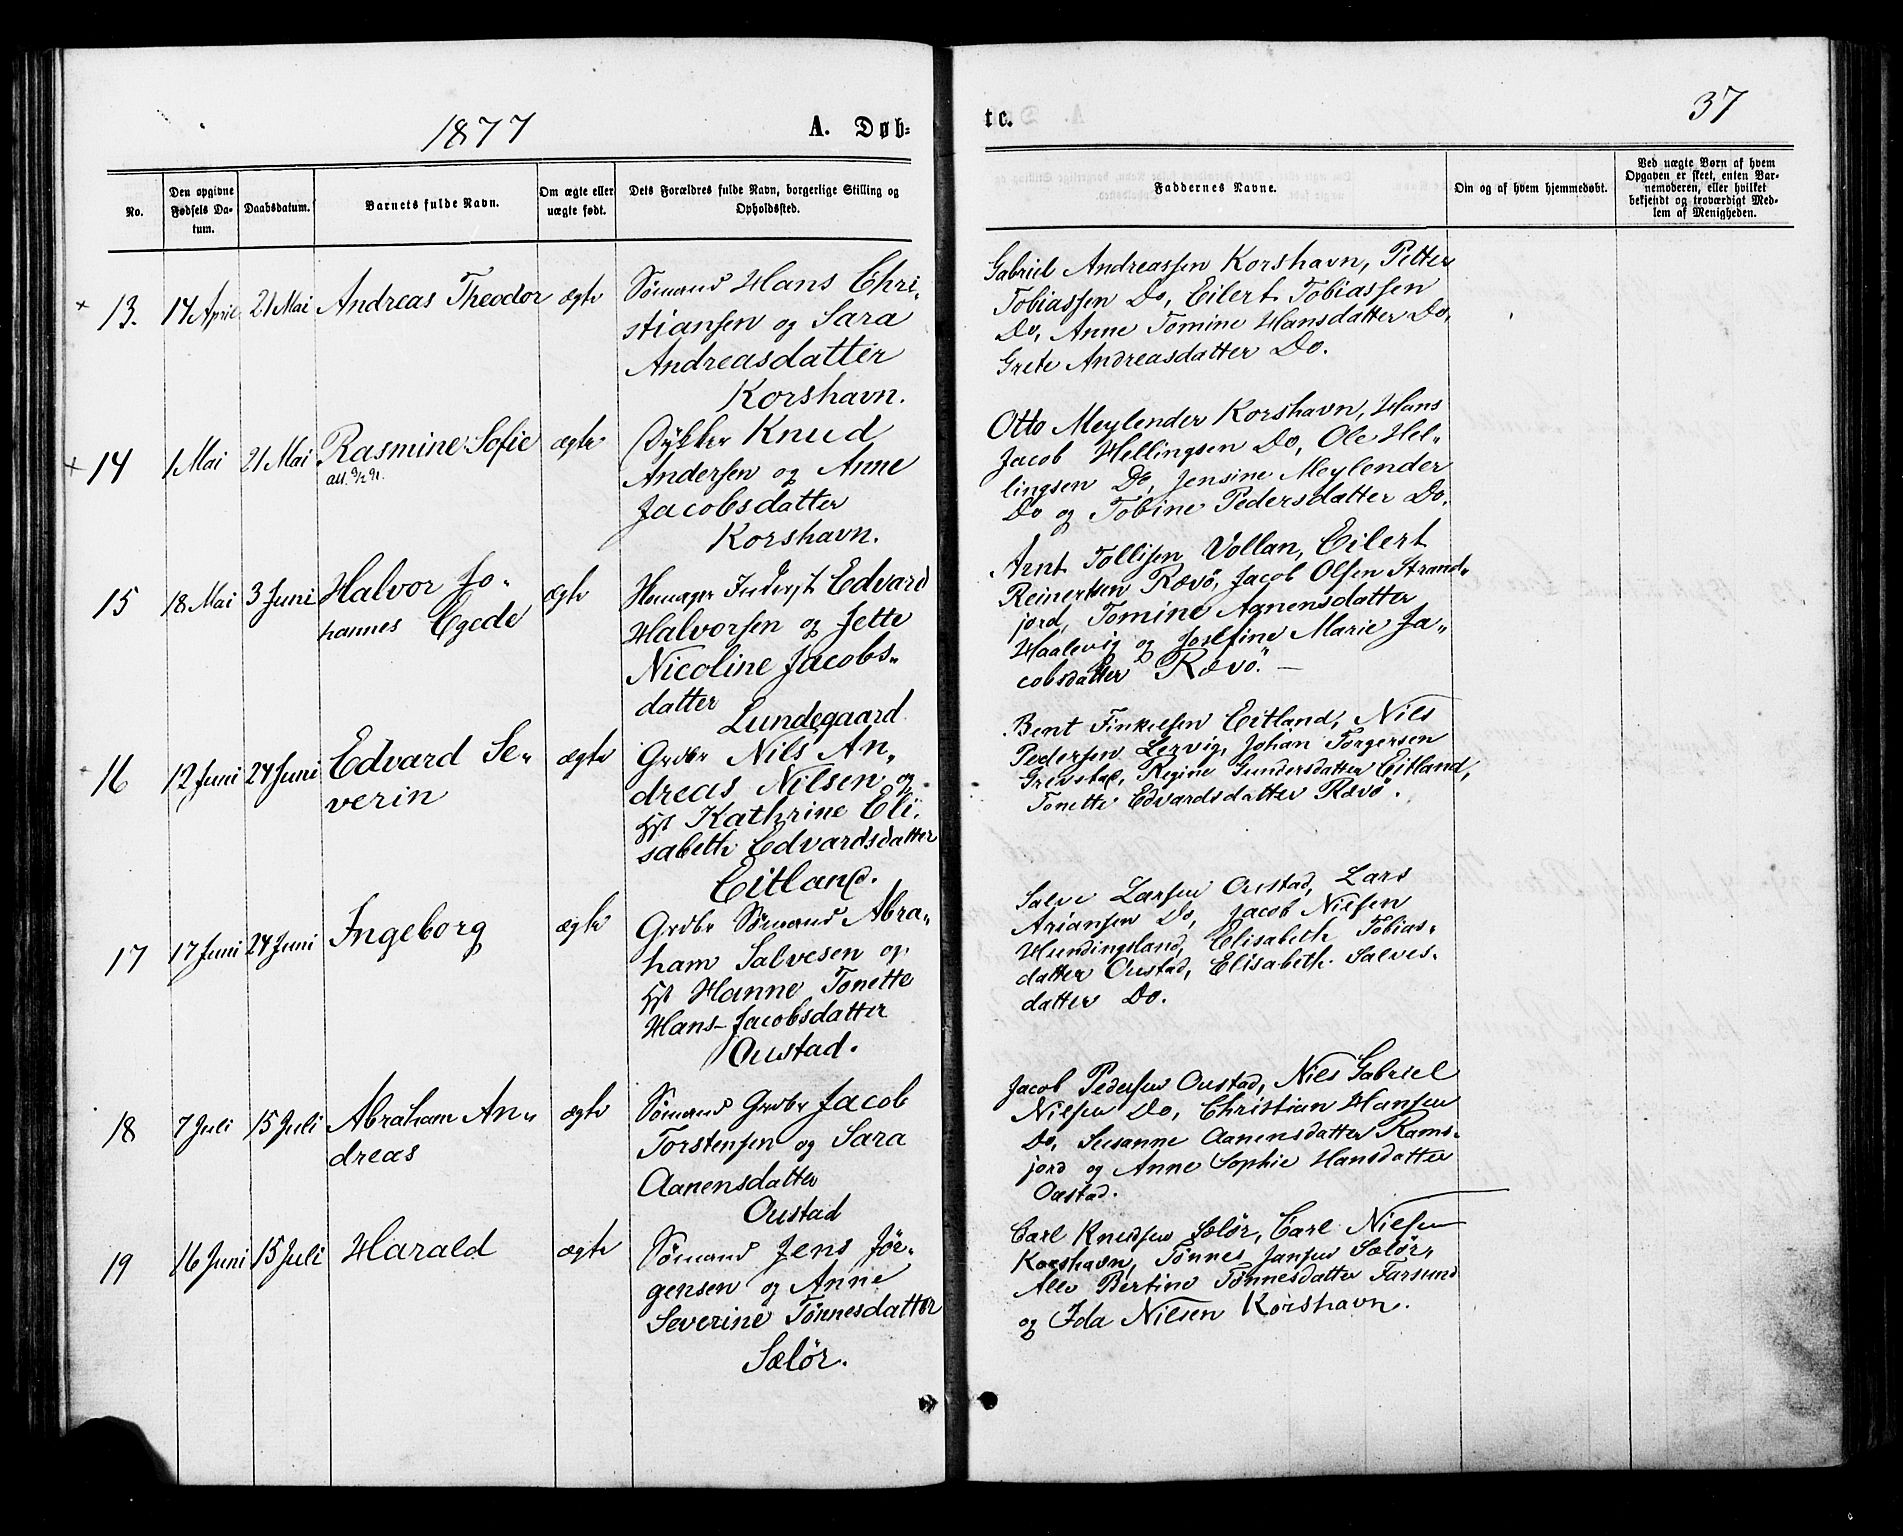 1877
A. Døb-
tc.
37
No.
Den opgivne
Fødsels Da-
tum.
Daabsdatum.
Barnets fulde Navn.
Om ægte eller
uægte født.
Dets Forældres fulde Navn, borgerlige Stilling og
Opholdssted.
Faddernes Navne.
Om og af hvem hjemmedøbt.
Ved uægte Børn af hvem
Opgaven er skeet, enten Bar-
nemoderen, eller hvilket
bekjendt og troværdigt Med-
lem af Menigheden.
× 13. 14 April 21 Mai Andreas Theodor ægte
Sømand Hans Chri-
stiansen og Sara
Andreasdatter
Korshavn.
Gabriel Andreassen Korshavn, Petter
Tobiassen Do, Eilert Tobiassen
Do, Anne Tomine Hansdatter Do,
Grete Andreasdatter Do.
× 14 1 Mai 21 Mai Rasmine Sofie ægte
att. 9/2 91.
Dykker Knud
Andersen og Anne
Jacobsdatter
Korshavn.
Otto Meylender Korshavn, Hans
Jacob Hellingsen Do, Ole Hel-
lingsen Do, Jensine Meylender
Do og Tobine Pedersdatter Do.
15 18 Mai 3 Juni Halvor Jo-
hannes Egede
ægte
Inderst Edvard
Halvorsen og Jette
Nicoline Jacobs-
datter
Lundegaard
Arnt Tollisen Vollan, Eilert
Reinertsen Rævø, Jacob Olsen Strand-
jord, Tomine Aanensdatter
Haalevig og Josefine Marie Ja-
cobsdatter Rævø. —
16 12 Juni 24 Juni Edvard Se-
verin
ægte
Grdbr Nils An-
dreas Nilsen og
Hst Kathrine Eli-
sabeth Edvardsdatter
Eitland.
Bent Finkelsen Eitland, Nils
Pedersen Lervig, Johan Torgersen
Grevstad, Regine Gundersdatter Eitland,
Tonette Edvardsdatter Rævø.
17 17 Juni 24 Juni Ingeborg ægte
Grdbr Sømand Abra-
ham Salvesen og
Hst Hanne Tonette
Hans-Jacobsdatter
Oustad.
Salve Larsen Oustad, Lars
Ariansen Do, Jacob Nielsen
Hundingsland, Elisabeth Tobias-
datter Oustad, Elisabeth Salves-
datter Do.
18 7 Juli 15 Juli Abraham An-
dreas
ægte
Sømand Grdbr Jacob
Torstensen og Sara
Aanensdatter
Oustad
Jacob Pedersen Oustad, Niels Gabriel
Nielsen Do, Christian Hansen
Do, Susanne Aanensdatter Rams-
jord og Anne Sophie Hansdatter
Oustad.
19 16 Juni 15 Juli Harald ægte
Sømand Jens Jør-
gensen og Anne
Severine Tønnesdatter
Sælør.
Carl Knudsen Sælør, Carl Nielsen
Korshavn, Tønnes Jansen Sælør,
Bertine Tønnesdatter Farsund
og Ida Nilsen Korshavn.